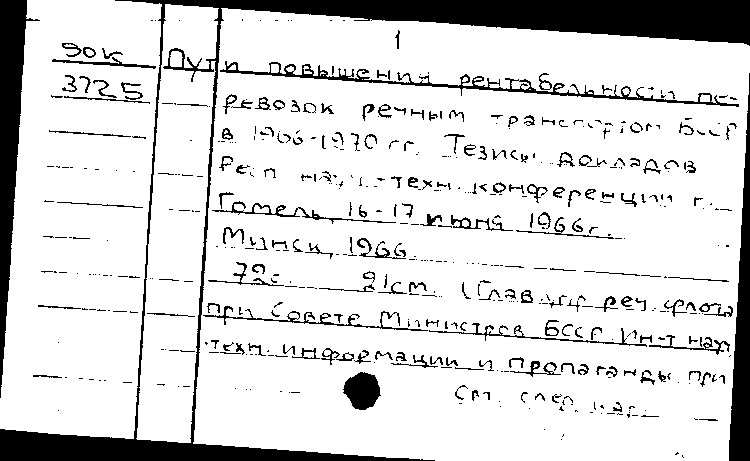 1
90к Пути повышения рентабельности пе-
3725 ревозок речным транспортом БССР
в 1966-1970 гг. Тезисы докладов
Респ науч.-техн. конференции г.
Гомель, 16-17 июня 1966г.
Минск, 1966.
72с. 21см. (Глав.упр реч. флота
при Совете Министров БССР. Ин-т науч
техн. информации и пропаганды при
См. след. кар.